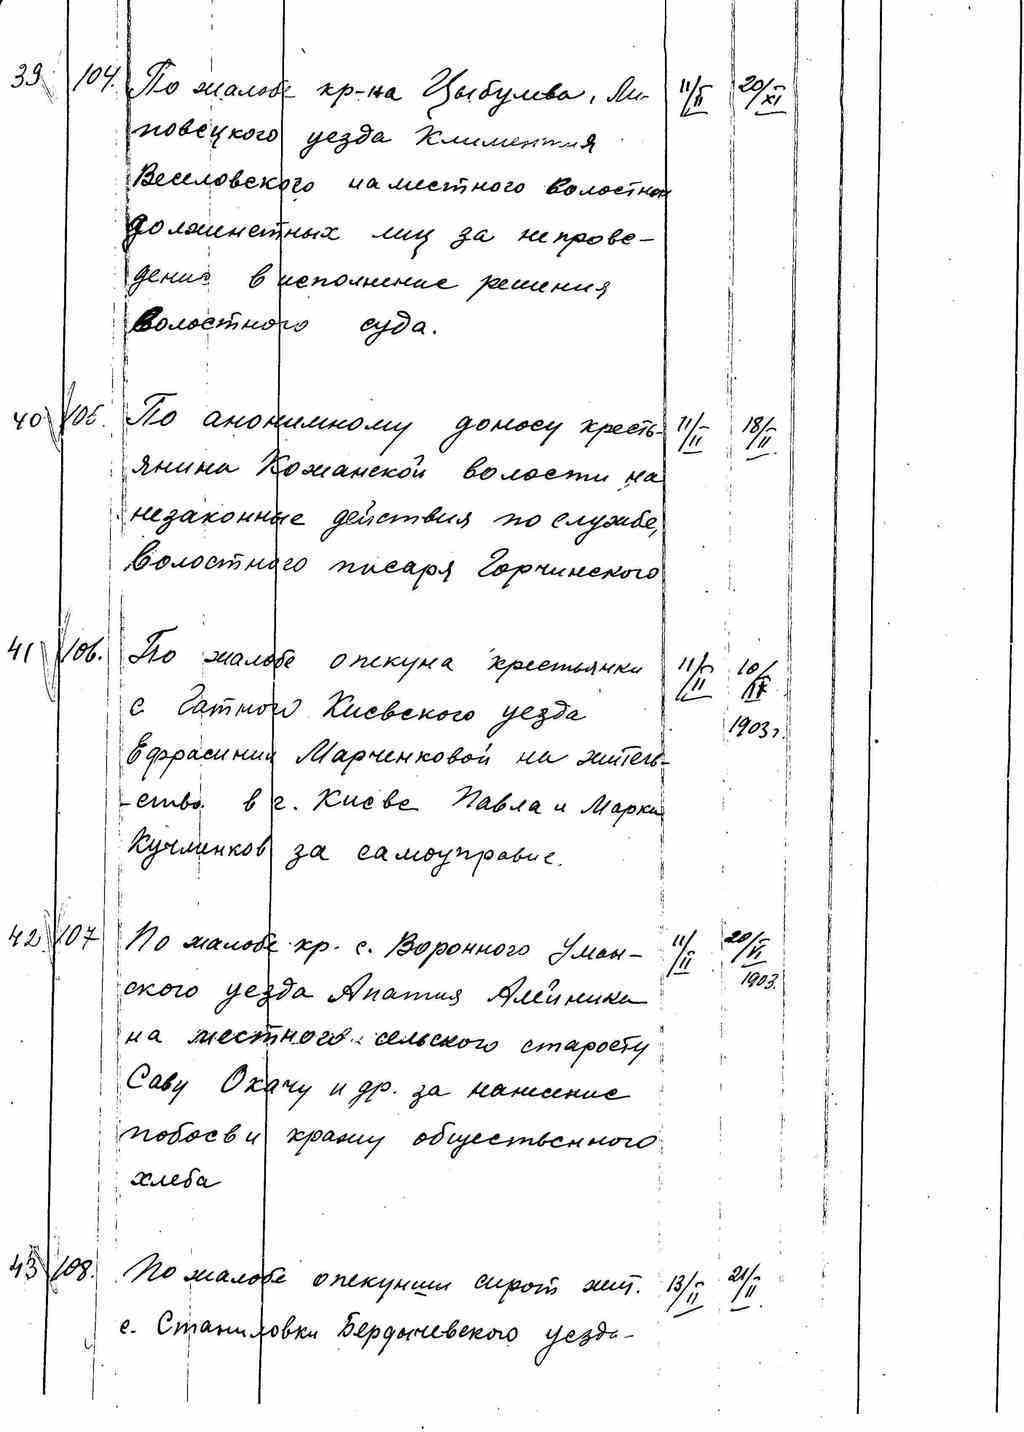 39 104. По жалобе кр-на Цыбулева, Ли- 11/II 20/XI
повецкого уезда Климентия
Веселовского на местного волостных
должностных лиц за непрове-
дение в исполнение решения
волостного суда.
40 105. По анонимному доносу кресть- 11/II 18/II
янина Кожанской волости на
незаконные действия по службе,
волостного писаря Горчинского
41 106. По жалобе опекуна крестьянки 11/II 10/IX
с Гатного Киевского уезда 1903 г.
Ефрасинии Марченковой на житель-
-ство в г. Киеве Павла и Марка
Кучменков за самоуправие.
42 107 По жалобе кр. с. Воронного Уман- 11/II 20/VI
ского уезда Апатия Алейника 1903.
на местного сельского старосту
Саву Охачу и др. за нанесение
побоев и кражу общественного
хлеба
43 108. По жалобе опекунши сирот жит. 13/II 21/II
с. Станиловки Бердычевского уезда-